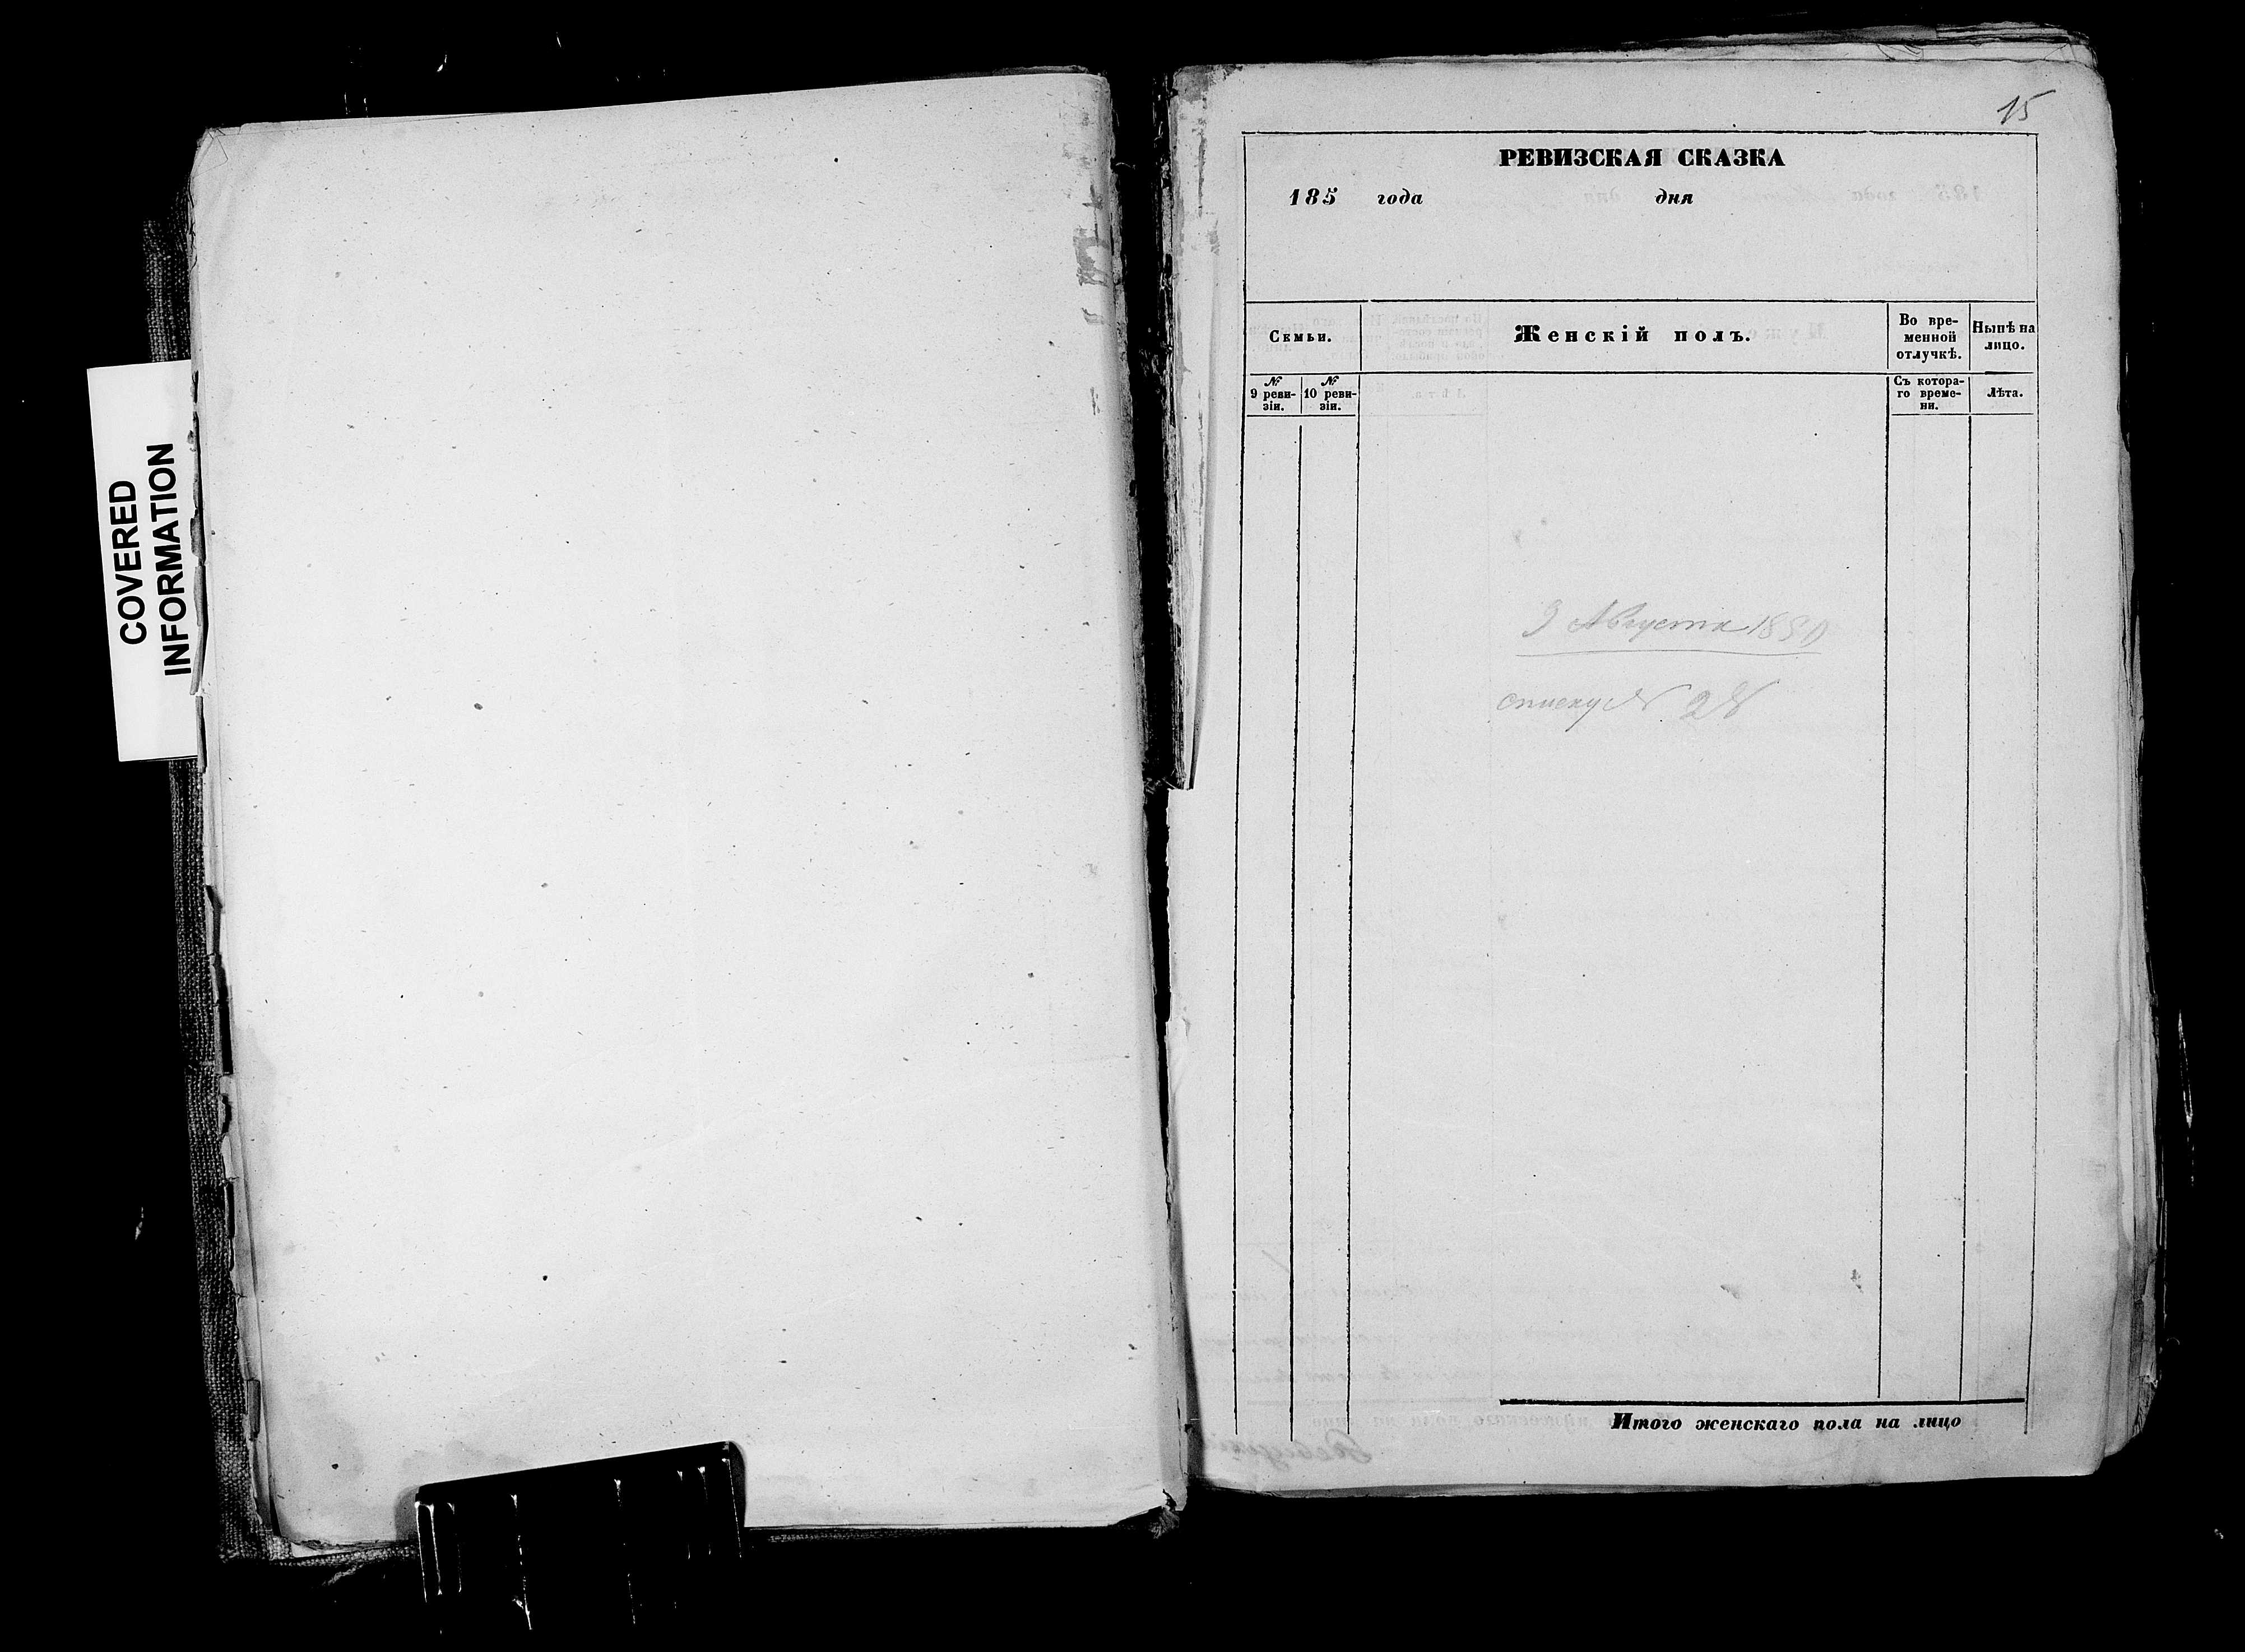 COVERED
INFORMATION
15
РЕВИЗСКАЯ СКАЗКА
185 года дня
Семьи.
Женскій полъ.
Во вре-
менной
отлучкѣ.
Нынѣ на
лицо.
№
9 реви-
зіи.
№
10 реви-
зіи.
Съ котора-
го време-
ни.
Лѣта.
9 Августа 1850
списку № 28
Итого женскаго пола на лицо